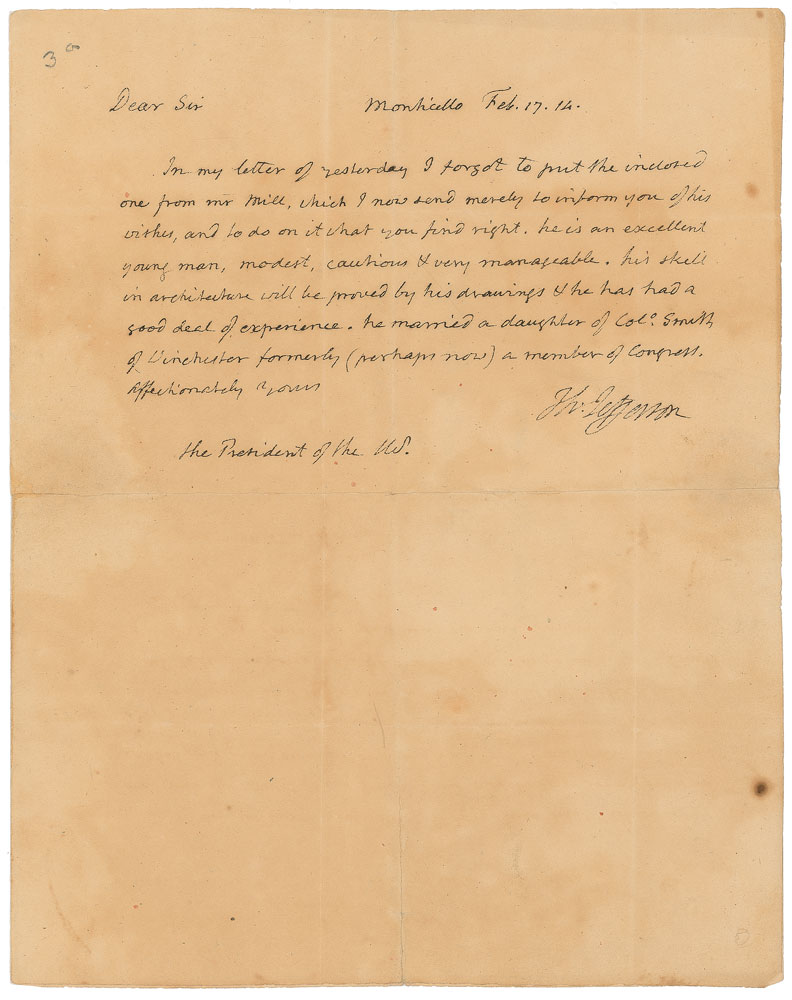 3
Dear Sir Monticello Feb. 17. 14.
In my letter of yesterday I forgot to put the inclosed
one from mr Mill, which I now send merely to inform you of his
wishes, and to do on it what you find right. he is an excellent
young man, modest, cautious & very manageable. his skill
in architecture will be proved by his drawings & he has had a
good deal of experience. he married a daughter of Colo. Smith
of Winchester formerly (perhaps now) a member of Congress.
Affectionately Yours
Th: Jefferson
the President of the US.